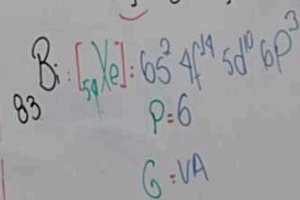 ₈₃Bi : [₅₄Xe] : 6s² 4f¹⁴ 5d¹⁰ 6p³
P = 6
G = VA